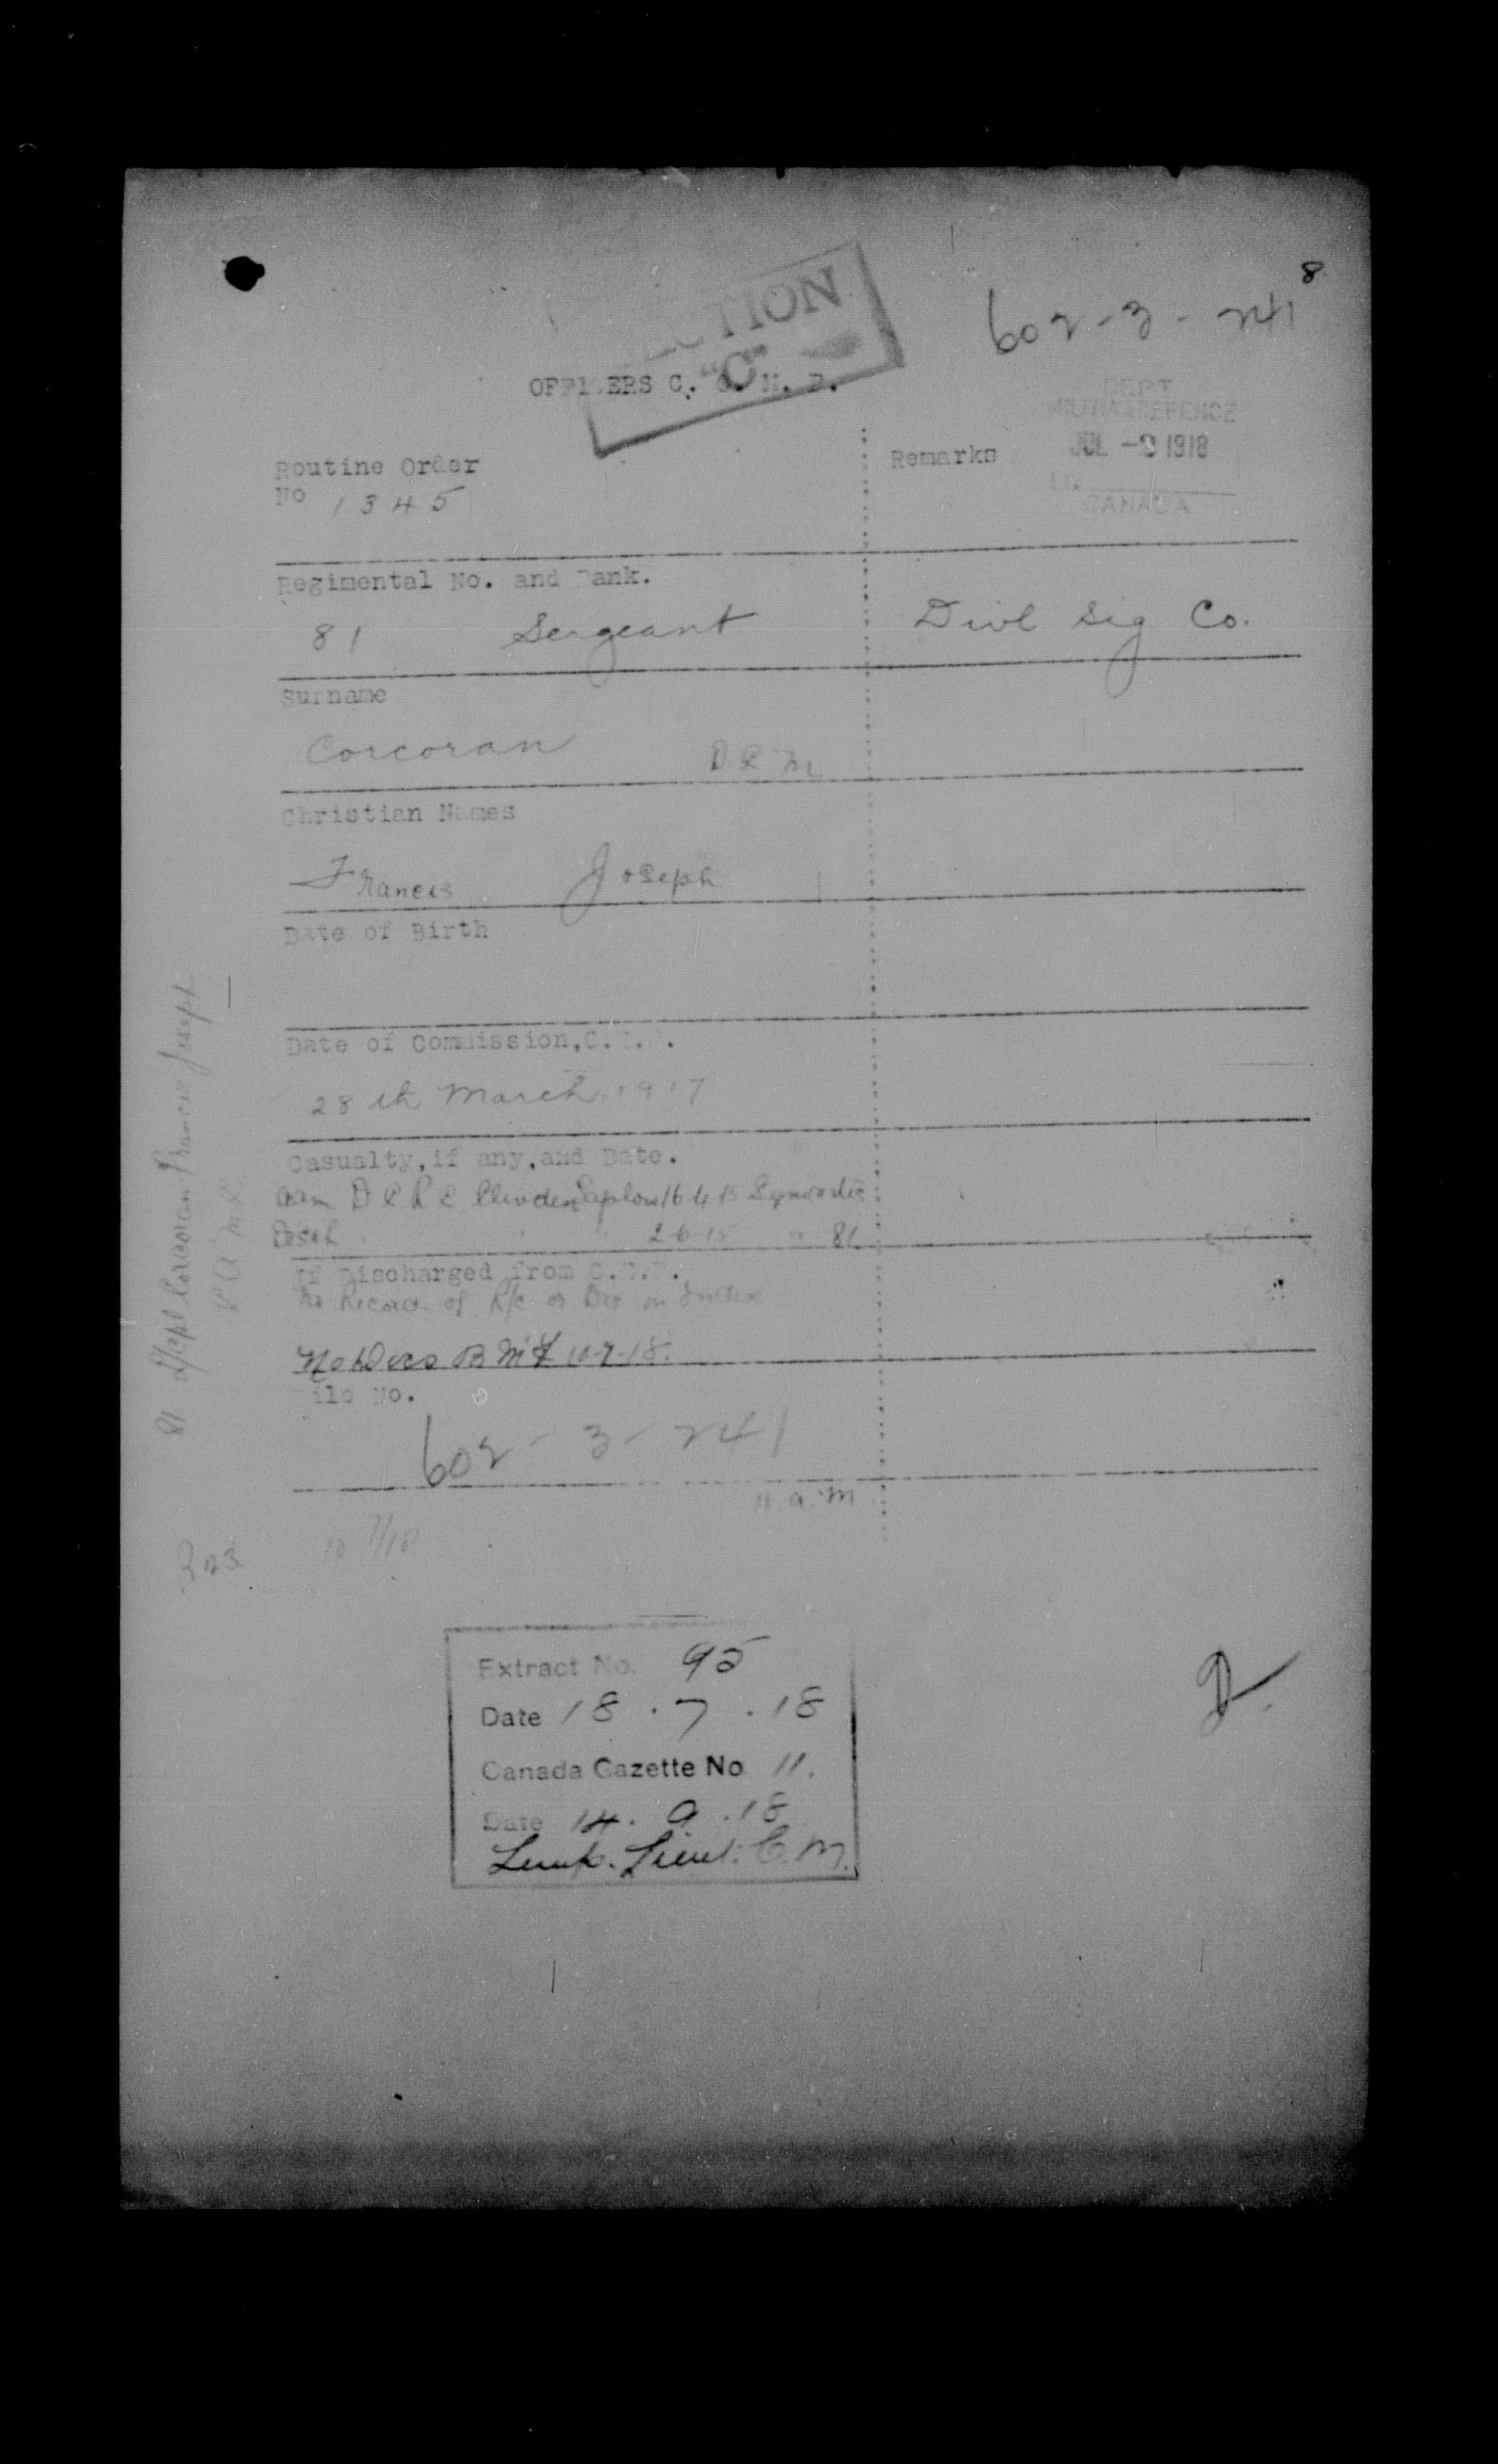 8
602-3-241
"C"
OFFICERS C. O. M. D.
DEPT
MILITIA & DEFENCE
JUL -9 1918
CANADA
Routine Order
No 1345
Remarks
Regimental No. and Rank.
81 Sergeant
Divl Sig Co.
Surname
Corcoran
D C M
Christian Names
Francis Joseph
Date of Birth
Date of Commission, C.
28th March 1917
Casualty, if any, and Date.
Taplow 16 4 15
Disch 2-6-15 " 81
If Discharged from C.
No Record of
No Docs 10-7-18.
File No.
602-3-241
a. m
10 7/18
81 Corcoran Francis Joseph
C A M C
Extract No. 95
Date 18.7.18
Canada Gazette No 11.
Date 14.9.18
Temp. Lieut. C. M.